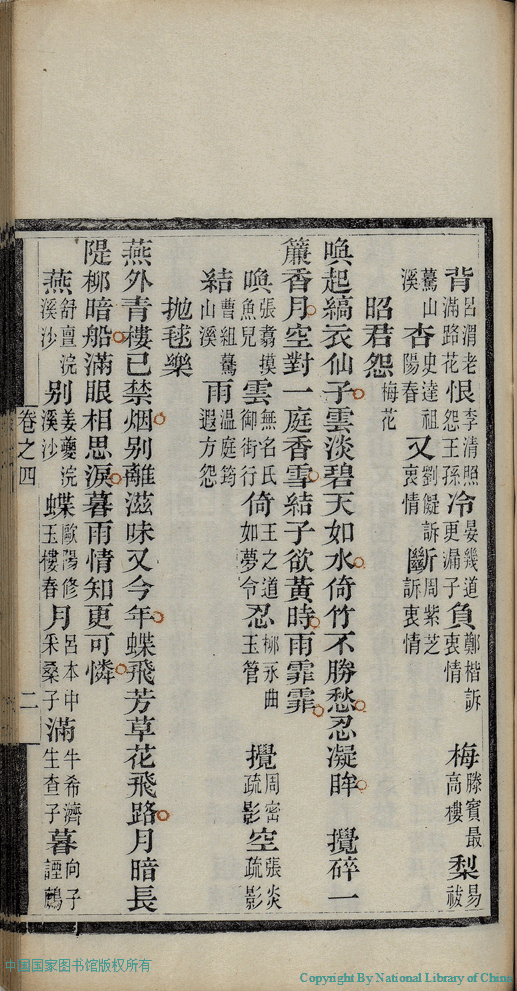 背呂渭老滿路花恨李清照怨王孫冷晏幾道更漏子負鄭楷訴衷情 梅滕賓最高樓梨易祓
驀山溪杏史達祖陽春又劉儗訴衷情斷周紫芝訴衷情
昭君怨梅花
喚起縞衣仙子雲淡碧天如水倚竹不勝愁忍凝眸 攪碎一
簾香月空對一庭香雪結子欲黃時雨霏霏
喚張翥摸魚兒雲無名氏御街行倚王之道如夢令忍柳永曲玉管 攪周密疏影空張炎疏影
結曹組驀山溪雨温庭筠遐方怨
拋毬樂
燕外青樓已禁烟别離滋味又今年蝶飛芳草花飛路月暗長
隄柳暗船滿眼相思淚暮雨情知更可憐
燕舒亶浣溪沙别姜夔浣溪沙蝶歐陽修玉樓春月呂本中采桑子滿牛希濟生查子暮向子諲鷓
卷之四 二
中国国家图书馆版权所有
Copyright By National Library of China